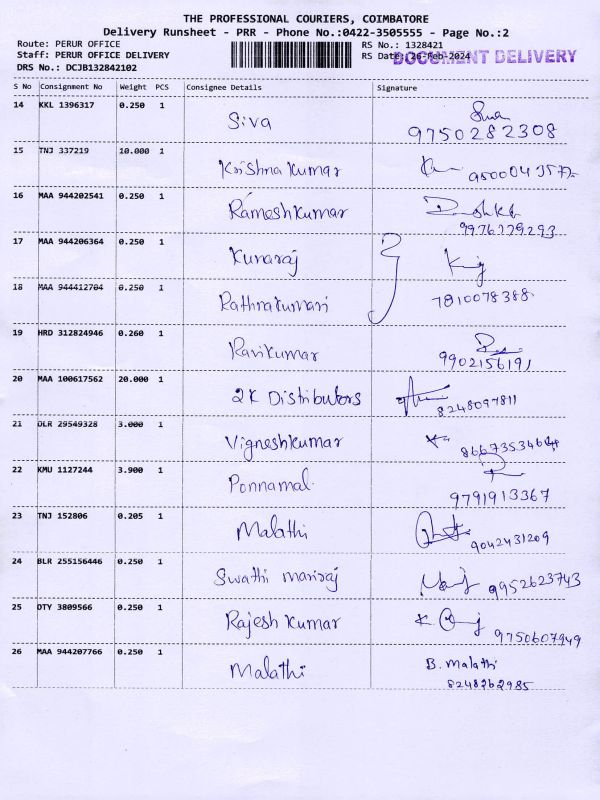 THE PROFESSIONAL COURIERS, COIMBATORE
Delivery Runsheet - PRR - Phone No.:0422-3505555 - Page No.:2
Route: PERUR OFFICE RS No.: 1328421
Staff: PERUR OFFICE DELIVERY RS Date: 26-Feb-2024 DOCUMENT DELIVERY
DRS No.: DCJB132842102
S No Consignment No Weight PCS Consignee Details Signature
14 KKL 1396317 0.250 1 Siva
9750282308
15 TNJ 337219 10.000 1 Krishna Kumar
16 MAA 944202541 0.250 1 Rameshkumar
9976179293
17 MAA 944206364 0.250 1 Kunaraj
18 MAA 944412704 0.250 1 Rathnakumari 7810078388
19 HRD 312824946 0.260 1 Ravikumar
9902156191
20 MAA 100617562 20.000 1 2K Distributors
8248097811
21 DLR 29549328 3.000 1 Vigneshkumar
22 KMU 1127244 3.900 1 Ponnamal.
9791913367
23 TNJ 152806 0.205 1 Malathi
9042431209
24 BLR 255156446 0.250 1 Swathi mariraj 9952623743
25 OTY 3809566 0.250 1 Rajesh Kumar
9750607949
26 MAA 944207766 0.250 1 Malathi B. Malathi
8248262985